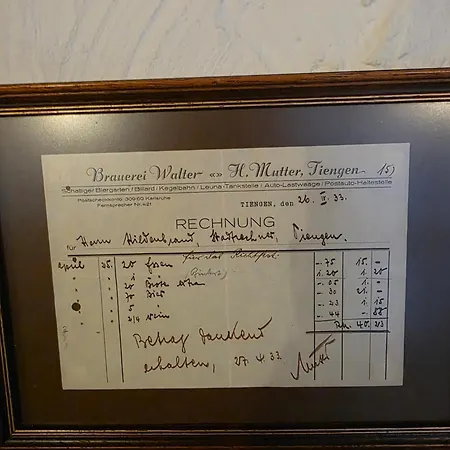 Brauerei Walter «» H. Mutter, Tiengen 15)
Schattiger Biergarten / Billard / Kegelbahn / Leuna-Tankstelle / Auto-Lastwaage / Postauto-Haltestelle
Postscheckkonto 309-60 Karlsruhe
Fernsprecher Nr. 421
TIENGEN, den 26. IV. 33.
RECHNUNG
für Herrn Hildenbrand, Tiengen.
April 25. 20 Essen -.75 15.-
1 1.20 1 20
20 Brote extra -.05 1.-
70 Bier -.30 21.-
5 -.23 1 15
2 2/4 Wein -.44 -.88
40. 23
Betrag dankend
erhalten, 27.4.33
Mutter